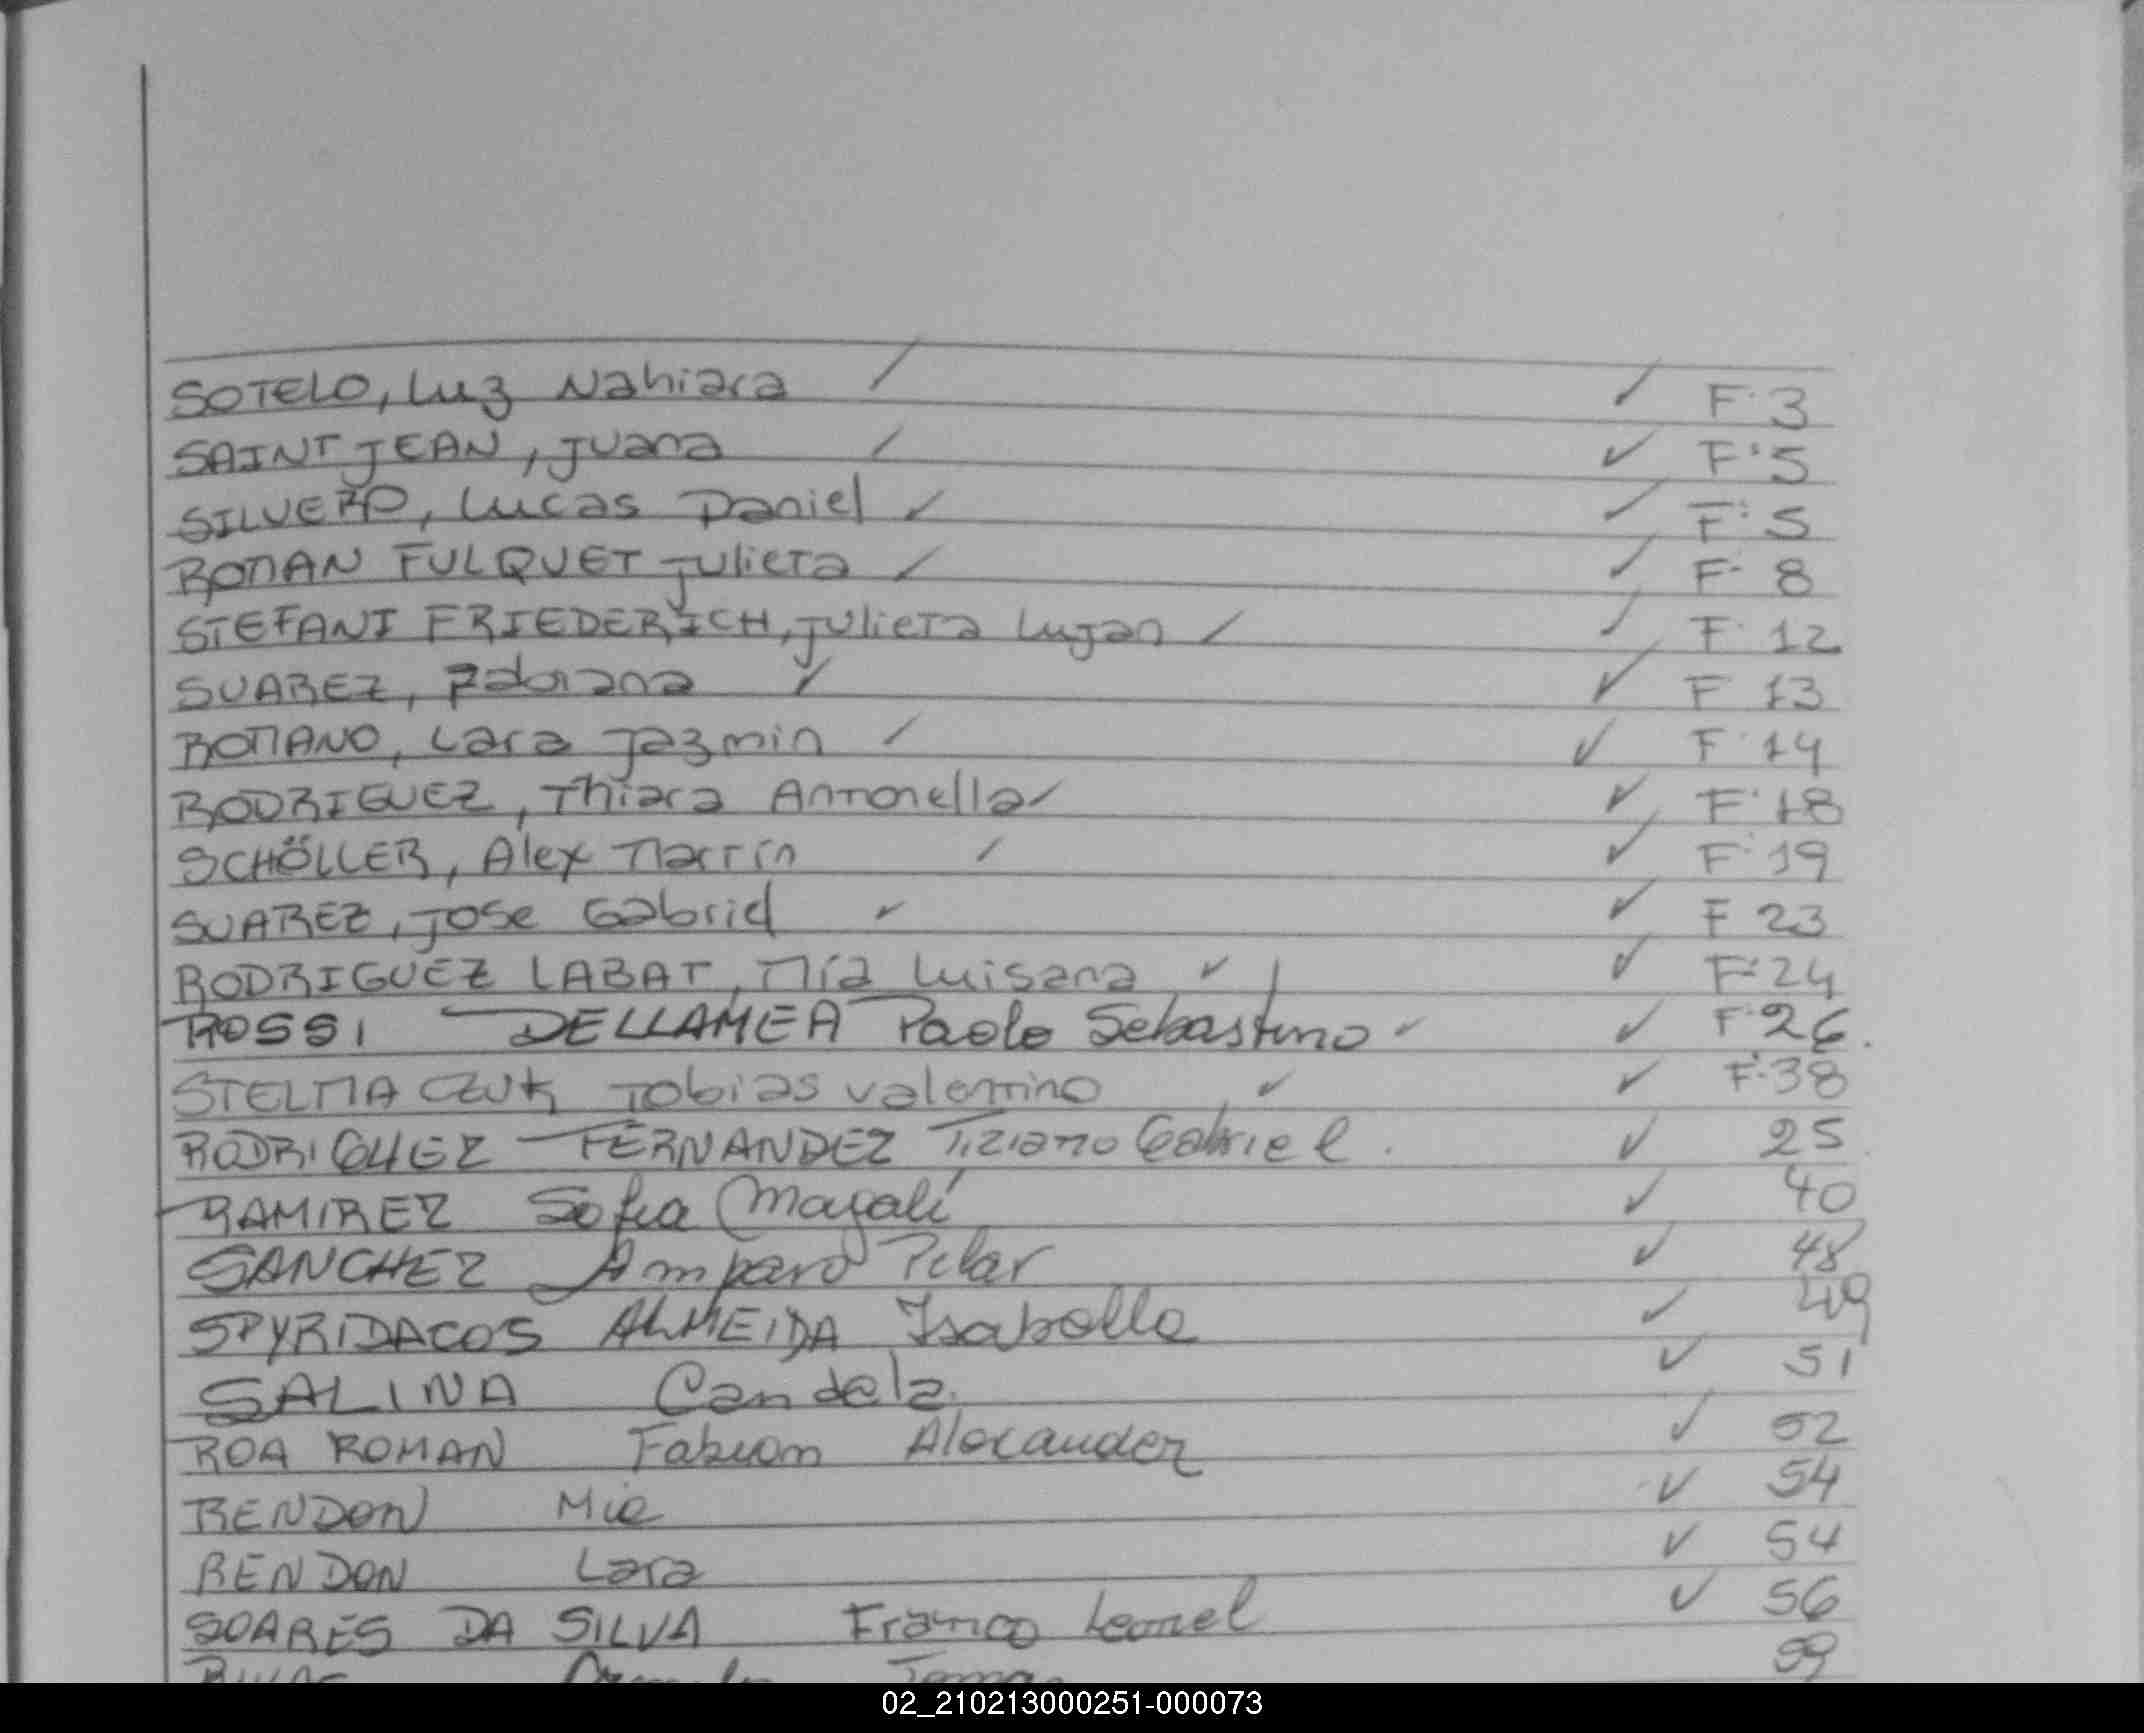 SOTELO, Luz Nahiara ✓ F. 3
SAINT JEAN, Juana ✓ F. 5
SILVERO, Lucas Daniel ✓ F. 5
ROMAN FULQUET Julieta ✓ F. 8
STEFANI FRIEDERICH, Julieta Lujan ✓ F. 12
SUAREZ, Fabiana ✓ F 13
ROMANO, Lara Jazmin ✓ F. 14
RODRIGUEZ, Thiara Antonella ✓ F. 18
SCHÖLLER, Alex Martín ✓ F. 19
SUAREZ, Jose Gabriel ✓ F 23
RODRIGUEZ LABAT, Mía Luisana ✓ F. 24
ROSSI DELLAMEA Paolo Sebastino ✓ F. 26.
STELMACZUK Tobias Valentino ✓ F. 38
RODRIGUEZ FERNANDEZ Tiziano Gabriel. ✓ 25.
RAMIREZ Sofia Magalí ✓ 40
SANCHEZ Amparo Pilar ✓ 48
SPYRIDACOS ALMEIDA Isabella ✓ 49
SALINA Candela. ✓ 51
ROA ROMAN Fabian Alexander ✓ 52
RENDON Mia ✓ 54
RENDON Lara ✓ 54
SOARES DA SILVA Franco Leonel ✓ 56
59
02_210213000251-000073